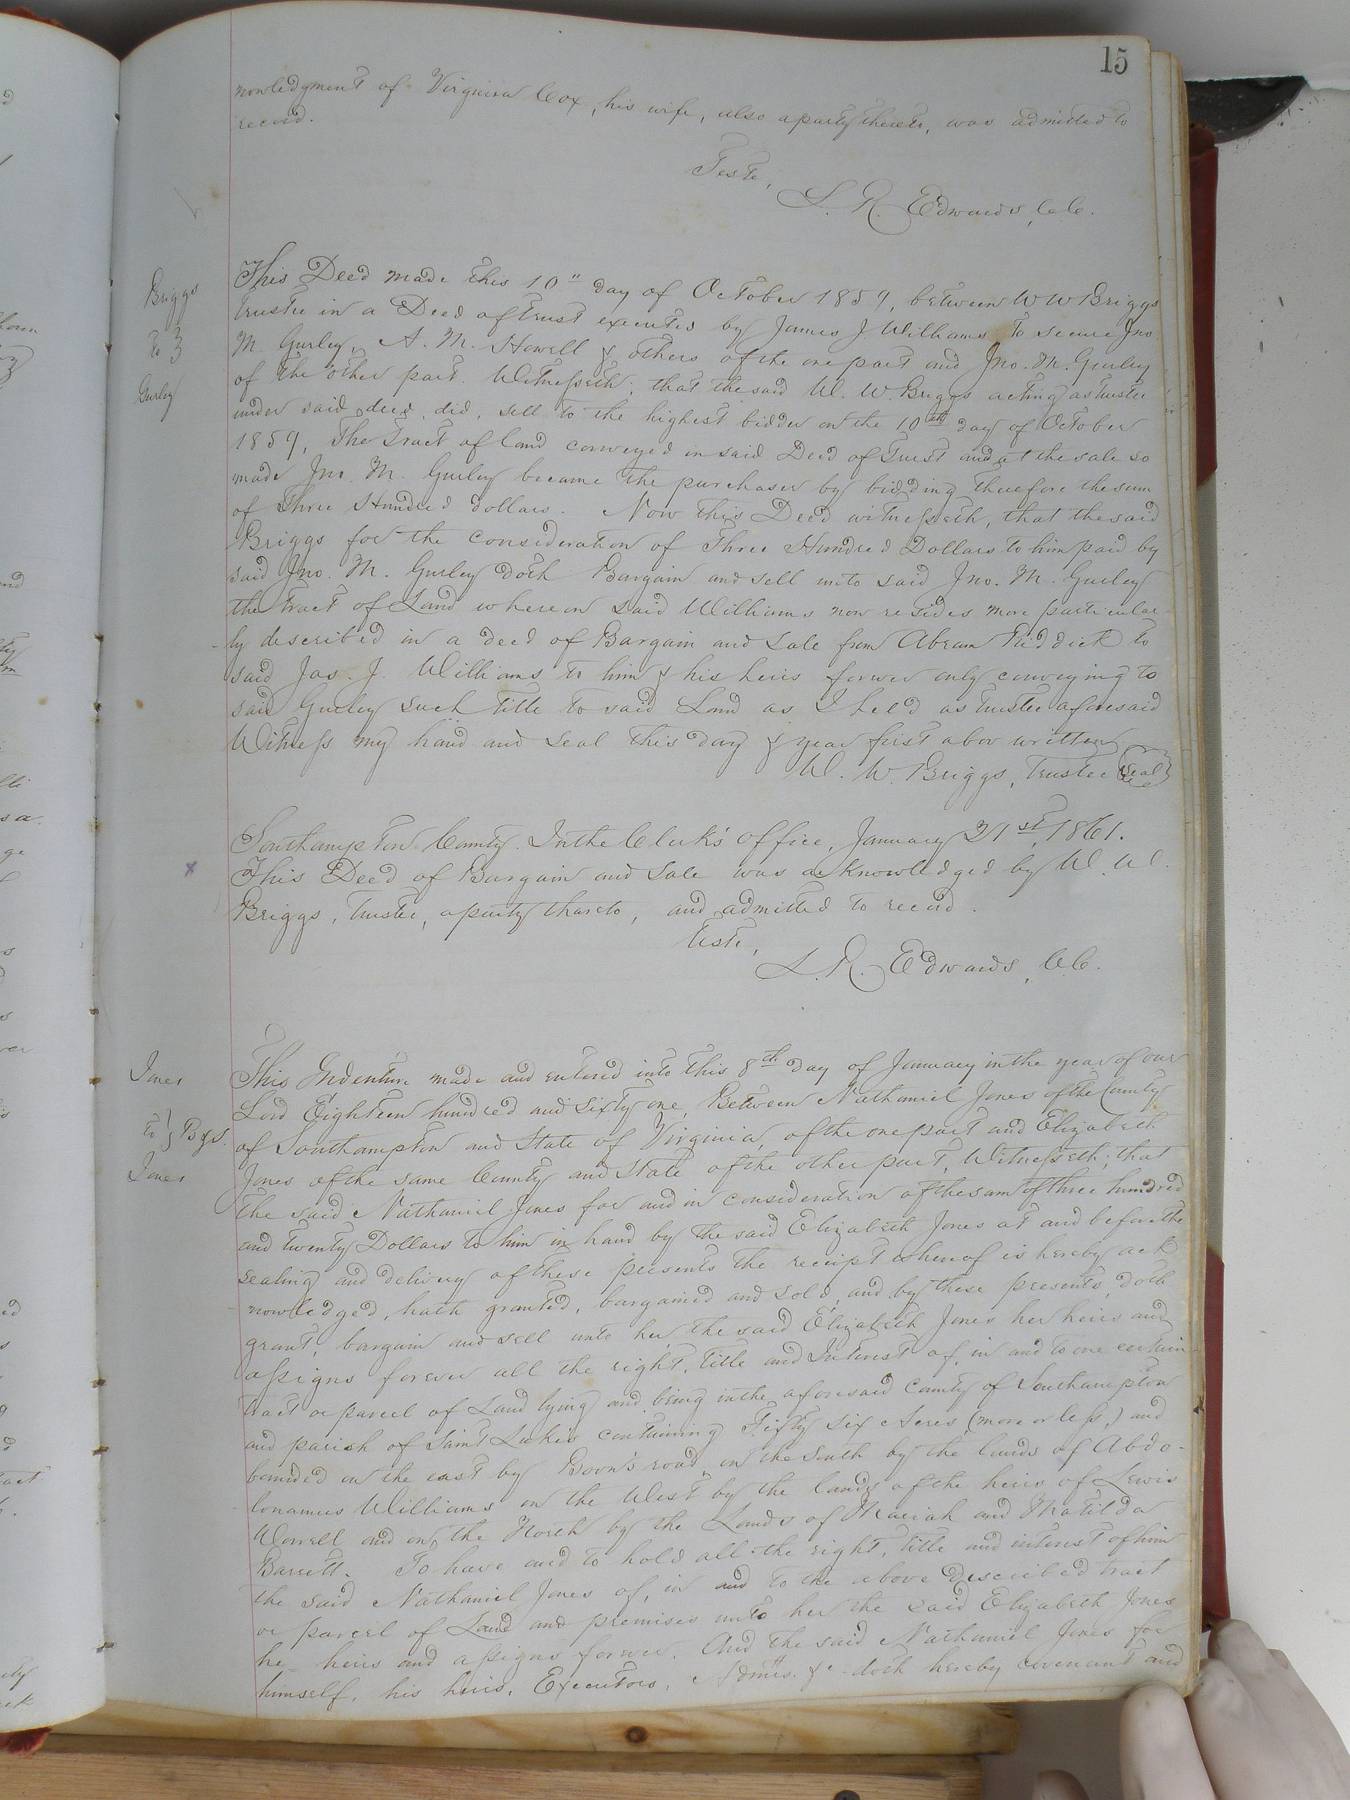 15
nowledgment of Virginia Cox, his wife, also a party thereto, was admitted to
record.
Teste,
L. R. Edwards, C.C.
Briggs
to
Gurley
This Deed made this 10" day of October 1859, between W W Briggs
Trustee in a Deed of Trust executed by James J Williams to secure Jno
M. Gurley, A. M. Howell & others of the one part and Jno. M. Gurley
of the other part. Witnesseth; that the said W. W. Briggs acting as trustee
under said deed, did, sell to the highest bidder on the 10th day of October
1859, The Tract of land conveyed in said Deed of Trust and at the sale so
made Jno M. Gurley became the purchaser by bidding therefore the sum
of Three Hundred dollars. Now this Deed witnesseth, that the said
Briggs for the consideration of Three Hundred Dollars to him paid by
said Jno. M. Gurley doth Bargain and sell unto said Jno. M. Gurley
the tract of Land whereon said Williams now resides more particular-
ly described in a deed of Bargain and Sale from Abram Riddick to
said Jas. J. Williams to him & his heirs forever only conveying to
said Gurley such title to said Land as I held as Trustee aforesaid
Witness my hand and seal this day & year first abov written
W. W. Briggs, Trustee Seal
Southampton County. In the Clerk's office, January 31st, 1861.
This Deed of Bargain and Sale was acknowledged by W. W.
Briggs, Trustee, a party thareto, and admitted to record.
Teste,
L. R. Edwards, C.C.
Jones
to } B & S.
Jones
This Indenture made and entered into this 8th day of January in the year of our
Lord Eighteen hundred and Sixty one, Between Nathaniel Jones of the County
of Southampton and State of Virginia, of the one part and Elizabeth
Jones of the same County and State of the other part, Witnesseth; that
the said Nathaniel Jones for and in consideration of the sum of three hundred
and twenty Dollars to him in hand by the said Elizabeth Jones at and before the
sealing and delivery of these presents the receipt whereof is hereby ack
nowledged, hath granted, bargained and sold, and by these presents, doth
grant, bargain and sell unto her the said Elizabeth Jones her heirs and
assigns forever all the right, title and Interest of, in and to one certain
tract or parcel of Land lying and being in the aforesaid County of Southampton
and parish of Saint Lukes containing Fifty six Acres (more or less,) and
bounded on the east by Boon's road on the South by the lands of Abdo-
lonamus Williams on the West by the lands of the heirs of Lewis
Worrell and on the North by the Lands of Mariah and Matilda
Barrett. To have and to hold all the right, title and interest of him
the said Nathaniel Jones of, in and to the above described tract
or parcel of Land and premises unto her the said Elizabeth Jones
he heirs and assigns forever. And the said Nathaniel Jones for
himself, his heirs, Executors, Admts. &c doth hereby covenant and